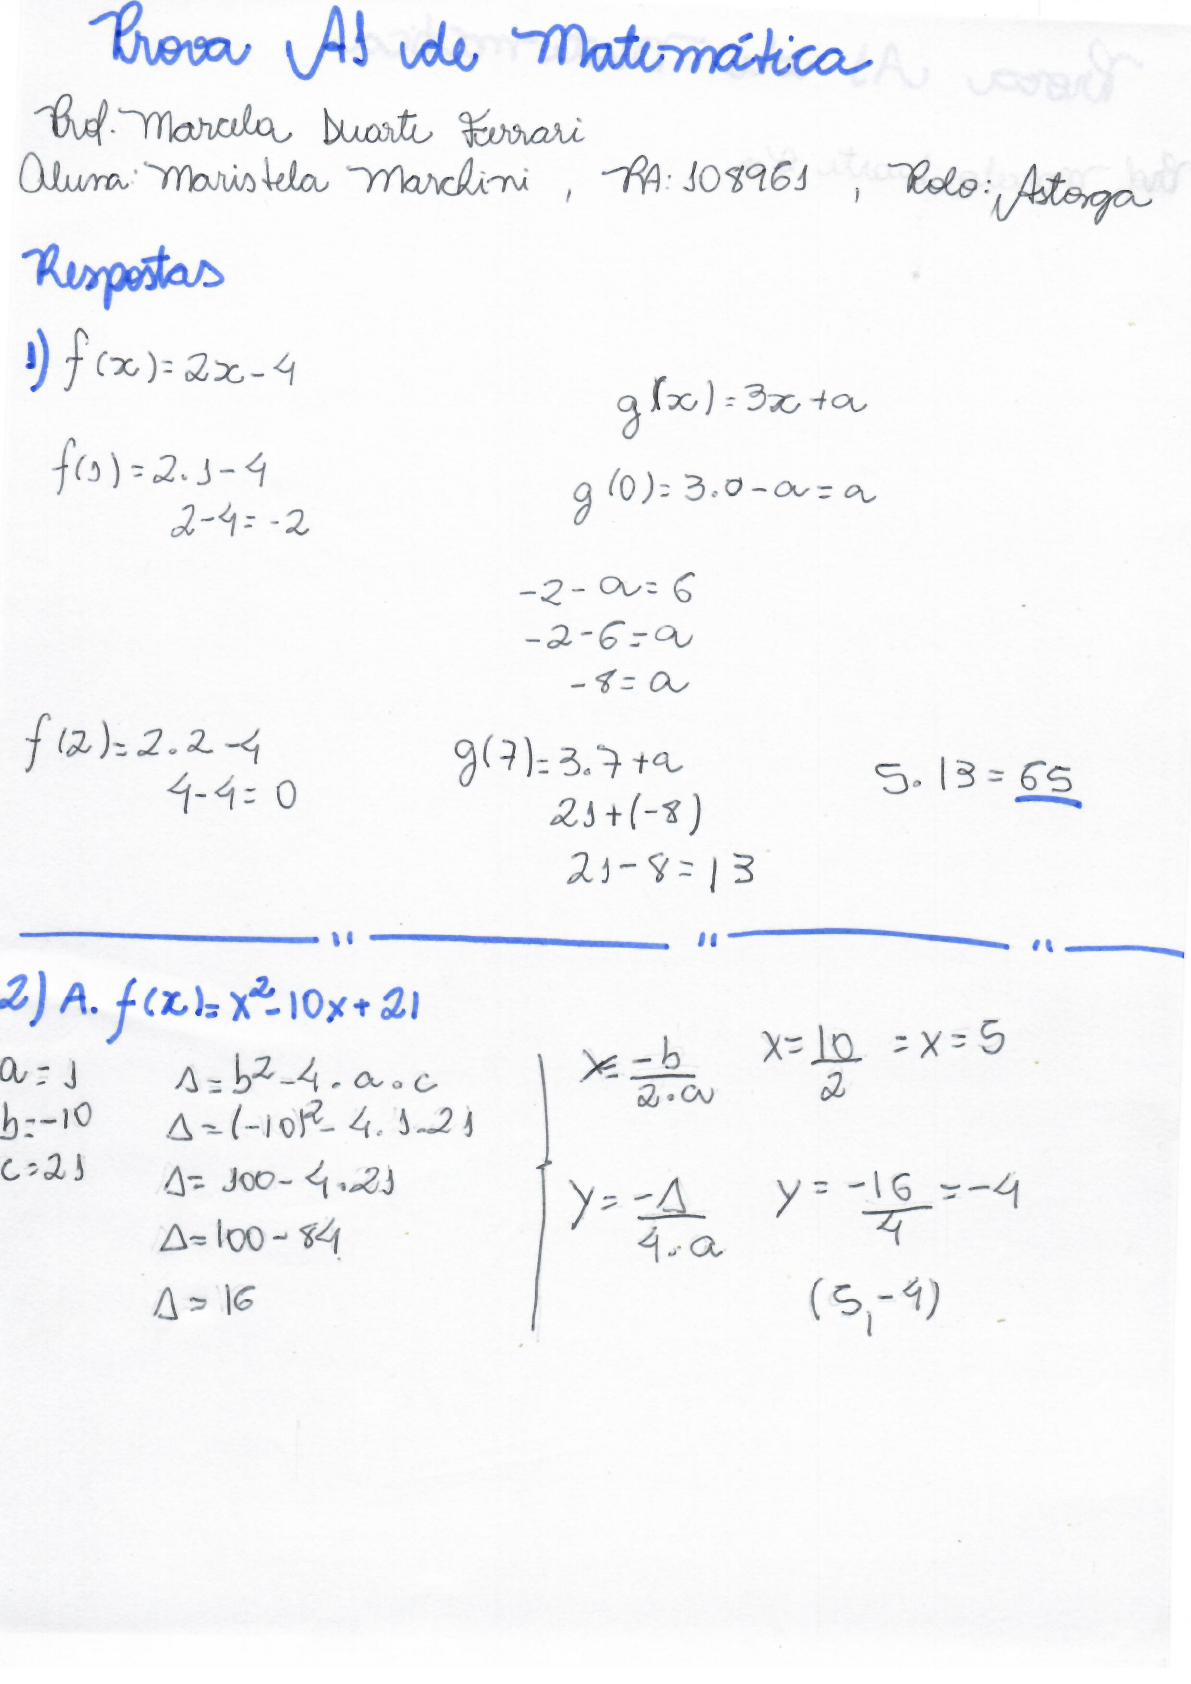 Prova A1 de Matemática
Prof. Marcela Duarte Ferrari
Aluna: Maristela Marchini , RA: 108961 , Polo: Astorga
Respostas
1) f(x)=2x-4
g(x)=3x+a
f(1)=2.1-4
2-4=-2
g(0)=3.0-a=a
-2-a=6
-2-6=a
-8=a
f(2)=2.2-4
4-4=0
g(7)=3.7+a
21+(-8)
21-8=13
5.13=65
2) A. f(x)=x²-10x+21
a=1
b=-10
c=21
Δ=b²-4.a.c
Δ=(-10)²-4.1.21
Δ=100-4.21
Δ=100-84
Δ=16
x=-b/2.a x=10/2 =x=5
y=-Δ/4.a y=-16/4=-4
(5,-4)